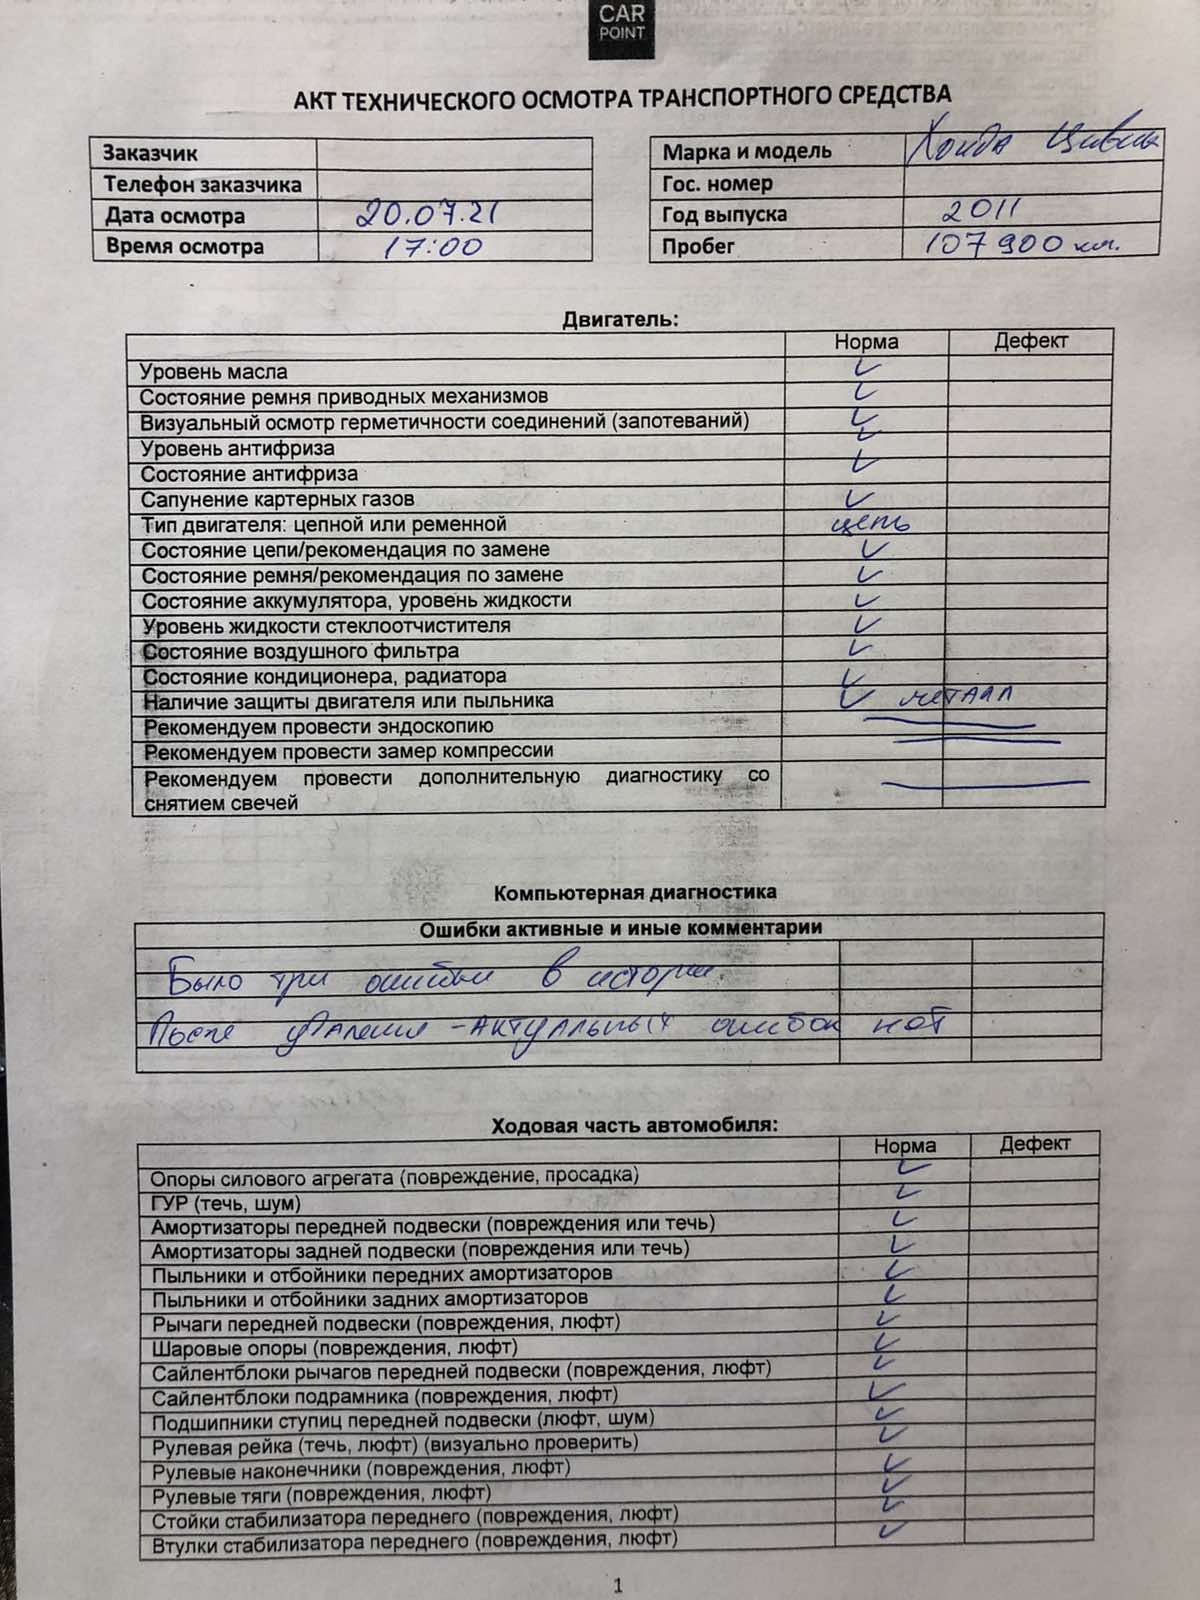 CAR
POINT
АКТ ТЕХНИЧЕСКОГО ОСМОТРА ТРАНСПОРТНОГО СРЕДСТВА
Заказчик
Телефон заказчика
Дата осмотра 20.07.21
Время осмотра 17:00
Марка и модель Хонда Цивик
Гос. номер
Год выпуска 2011
Пробег 107 900 км.
Двигатель:
Норма Дефект
Уровень масла
Состояние ремня приводных механизмов
Визуальный осмотр герметичности соединений (запотеваний)
Уровень антифриза
Состояние антифриза
Сапунение картерных газов
Тип двигателя: цепной или ременной цепь
Состояние цепи/рекомендация по замене
Состояние ремня/рекомендация по замене
Состояние аккумулятора, уровень жидкости
Уровень жидкости стеклоотчистителя
Состояние воздушного фильтра
Состояние кондиционера, радиатора
Наличие защиты двигателя или пыльника металл
Рекомендуем провести эндоскопию
Рекомендуем провести замер компрессии
Рекомендуем провести дополнительную диагностику со
снятием свечей
Компьютерная диагностика
Ошибки активные и иные комментарии
Было три ошибки в истории.
После удаления - актуальных ошибок нет
Ходовая часть автомобиля:
Норма Дефект
Опоры силового агрегата (повреждение, просадка)
ГУР (течь, шум)
Амортизаторы передней подвески (повреждения или течь)
Амортизаторы задней подвески (повреждения или течь)
Пыльники и отбойники передних амортизаторов
Пыльники и отбойники задних амортизаторов
Рычаги передней подвески (повреждения, люфт)
Шаровые опоры (повреждения, люфт)
Сайлентблоки рычагов передней подвески (повреждения, люфт)
Сайлентблоки подрамника (повреждения, люфт)
Подшипники ступиц передней подвески (люфт, шум)
Рулевая рейка (течь, люфт) (визуально проверить)
Рулевые наконечники (повреждения, люфт)
Рулевые тяги (повреждения, люфт)
Стойки стабилизатора переднего (повреждения, люфт)
Втулки стабилизатора переднего (повреждения, люфт)
1